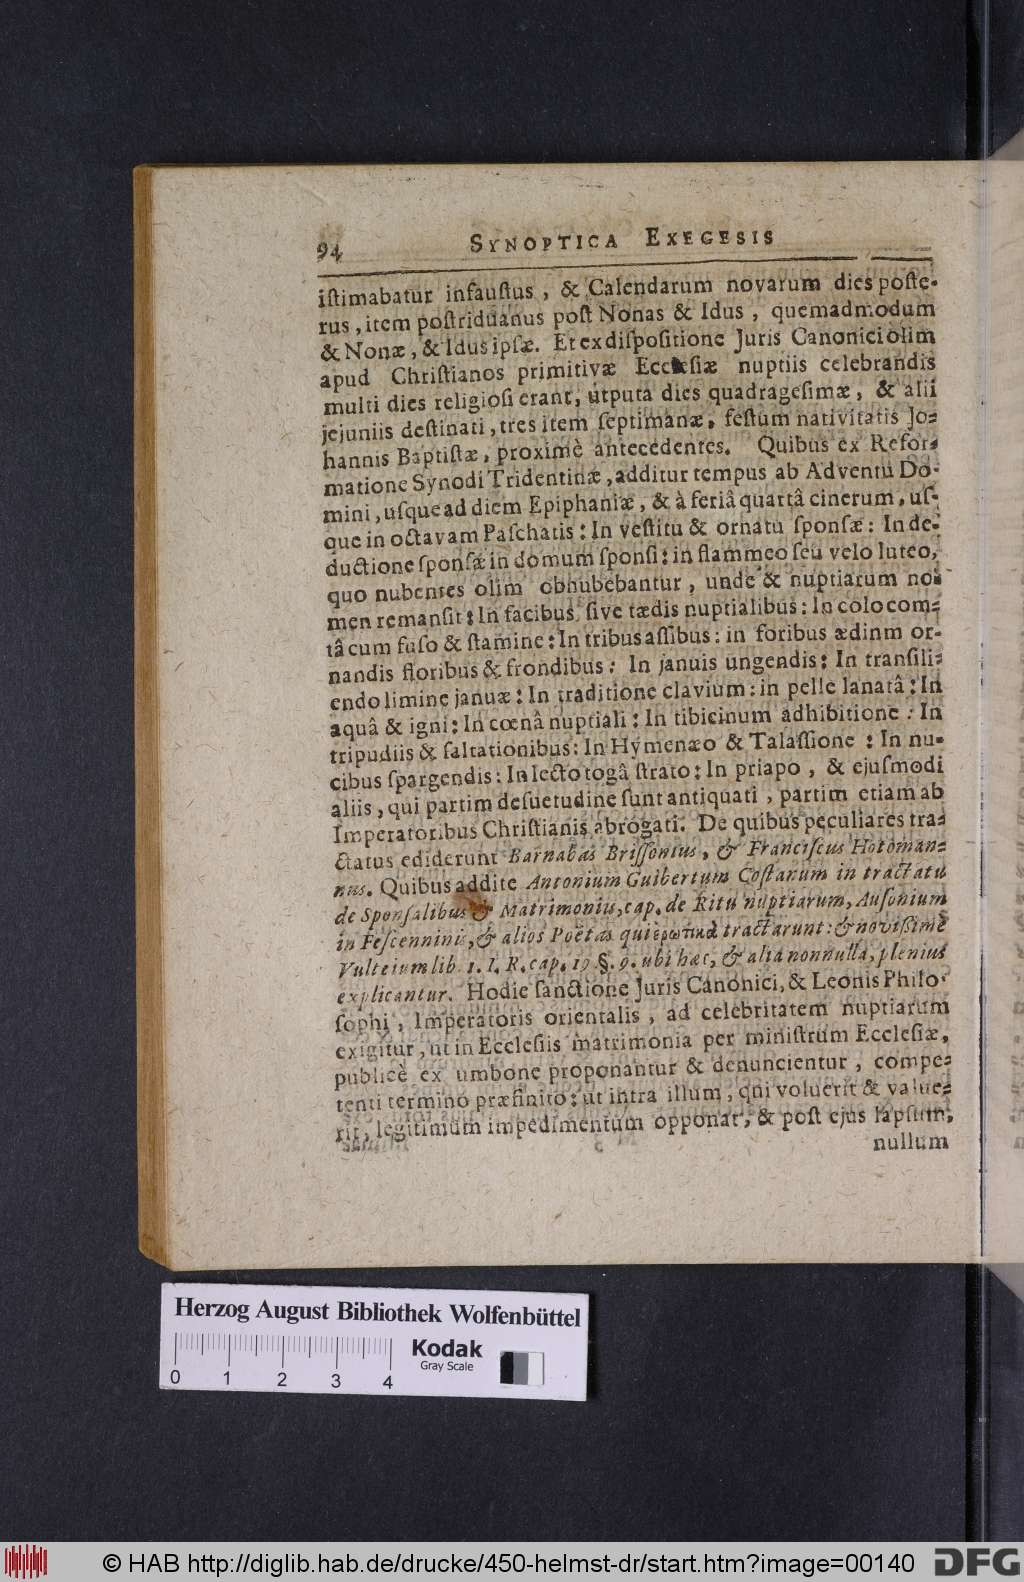 94 SYNOPTICA EXEGESIS
iſtimabatur infauſtus, & Calendarum novarum dies poſte-
rus, item poſtriduanus poſt Nonas & Idus, quemadmodum
& Nonæ, & Idus ipſæ. Et ex diſpoſitione Juris Canonici olim
apud Chriſtianos primitivæ Eccleſiæ nuptiis celebrandis
multi dies religioſi erant, utputa dies quadrageſimæ, & alii
jejuniis deſtinati, tres item ſeptimanæ, feſtum nativitatis Jo-
hannis Baptiſtæ, proximè antecedentes. Quibus ex Refor-
matione Synodi Tridentinæ, additur tempus ab Adventu Do-
mini, uſque ad diem Epiphaniæ, & à feriâ quartâ cinerum, uſ-
que in octavam Paſchatis: In veſtitu & ornatu ſponſæ: In de-
ductione ſponſæ in domum ſponſi: in flammeo ſeu velo luteo,
quo nubentes olim obnubebantur, unde & nuptiarum no-
men remanſit: In facibus ſive tædis nuptialibus: In colo com-
tâ cum fuſo & ſtamine: In tribus aſſibus: in foribus ædinm or-
nandis floribus & frondibus: In januis ungendis: In tranſili-
endo limine januæ: In traditione clavium: in pelle lanatâ: In
aquâ & igni: In cœnâ nuptiali: In tibicinum adhibitione: In
tripudiis & ſaltationibus: In Hymenæo & Talaſſione: In nu-
cibus ſpargendis: In lecto togâ ſtrato: In priapo, & ejuſmodi
aliis, qui partim deſuetudine ſunt antiquati, partim etiam ab
Imperatoribus Chriſtianis abrogati. De quibus peculiares tra-
ctatus ediderunt Barnabas Briſſonius, & Franciſcus Hotoman-
nus. Quibus addite Antonium Guibertum Coſtanum in tractatu
de Sponſalibus & Matrimoniu, cap. de Ritu nuptiarum, Auſonium
in Feſcenninis, & alios Poëtas qui ἐρωτικὰ tractarunt: & noviſſimè
Vulteium lib. 1. I. R. cap. 19 §. 9. ubi hæc, & alia nonnulla, plenius
explicantur. Hodie ſanctione Juris Canonici, & Leonis Philo-
ſophi, Imperatoris orientalis, ad celebritatem nuptiarum
exigitur, ut in Eccleſiis matrimonia per miniſtrum Eccleſiæ,
publicè ex umbone proponantur & denuncientur, compe-
tenti termino præfinito: ut intra illum, qui voluerit & value-
rit, legitimum impedimentum opponat, & poſt ejus lapſum,
nullum
Herzog August Bibliothek Wolfenbüttel
Kodak
Gray Scale
0 1 2 3 4
© HAB http://diglib.hab.de/drucke/450-helmst-dr/start.htm?image=00140 DFG